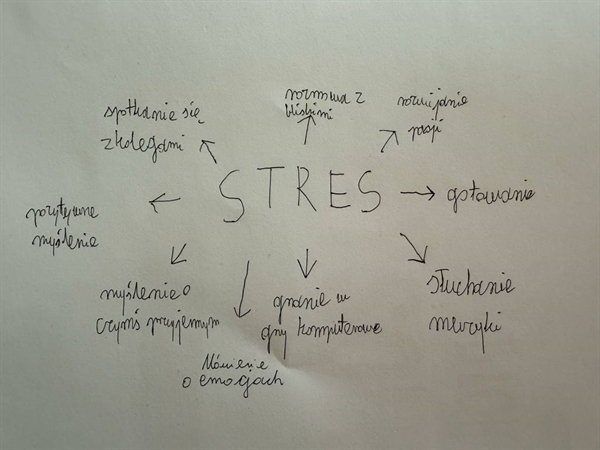 spotkanie się
z kolegami
rozmowa z
bliskimi
rozwijanie
pasji
STRES
gotowanie
pozytywne
myślenie
myślenie o
czymś przyjemnym
Mówienie
o emocjach
granie w
gry komputerowe
słuchanie
muzyki